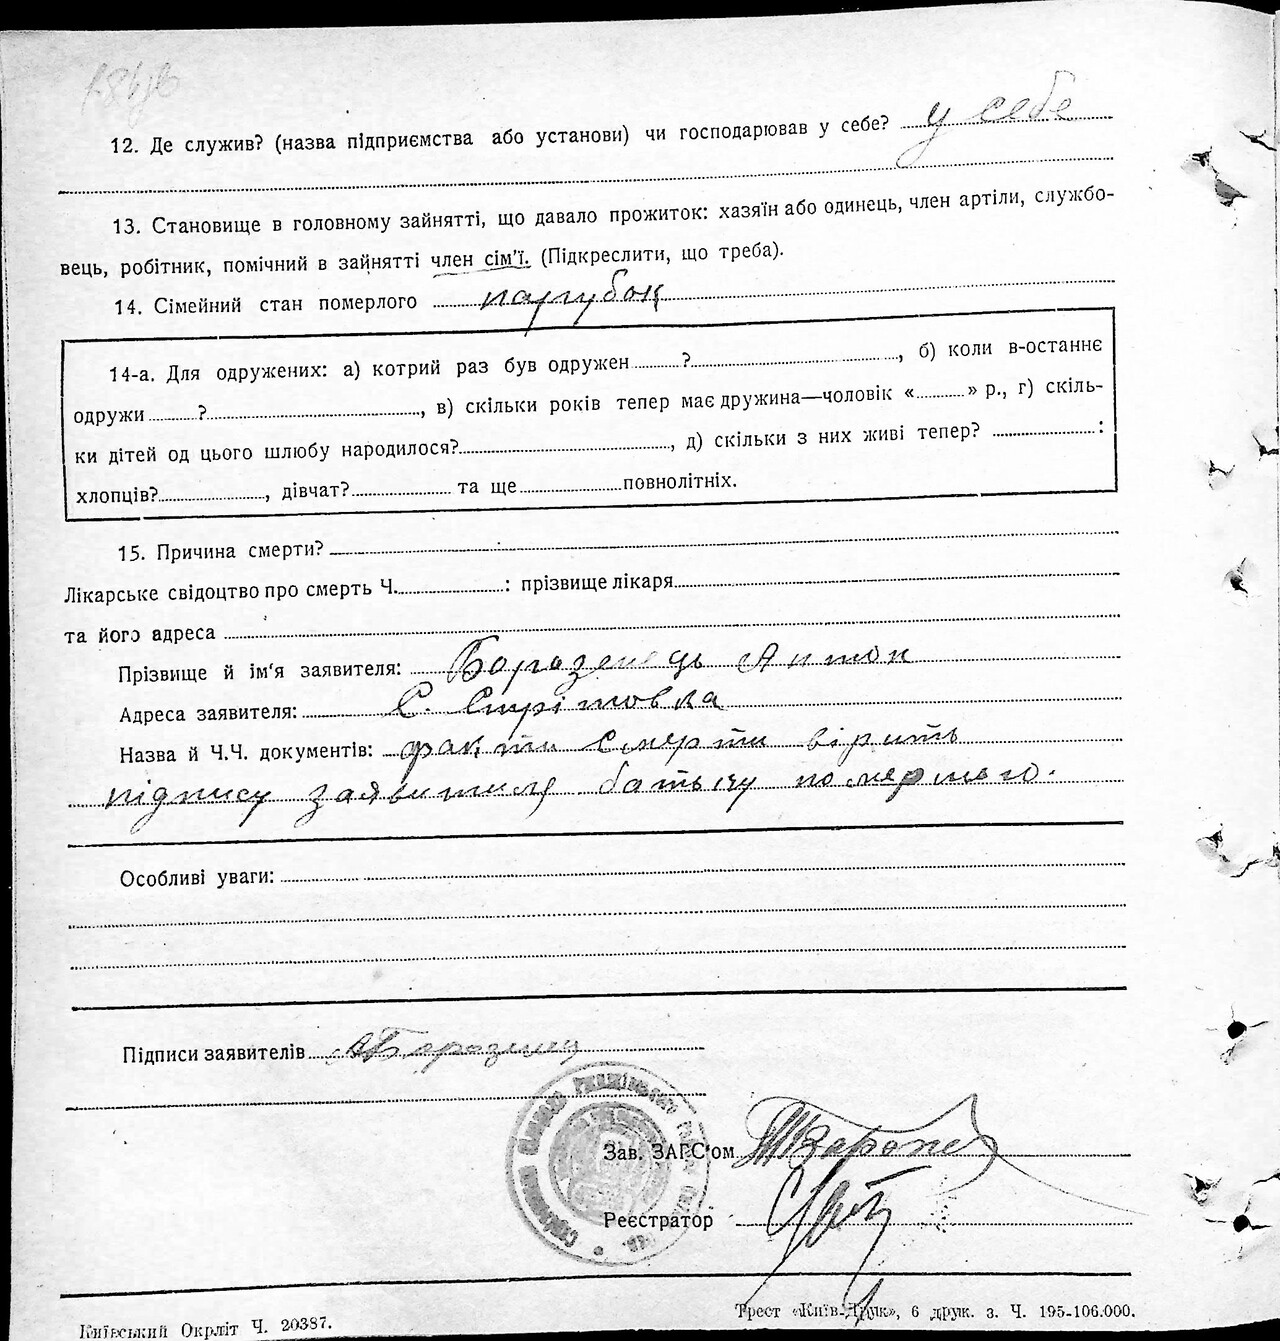 12. Де служив? (назва підприємства або установи) чи господарював у себе? у себе
13. Становище в головному зайнятті, що давало прожиток: хазяїн або одинець, член артіли, службо-
вець, робітник, помічний в зайнятті член сім'ї. (Підкреслити, що треба).
14. Сімейний стан померлого парубок
14-а. Для одружених: а) котрий раз був одружен ?, б) коли в-останнє
одружи ?, в) скільки років тепер має дружина—чоловік « » р., г) скіль-
ки дітей од цього шлюбу народилося?, д) скільки з них живі тепер? :
хлопців?, дівчат? та ще повнолітніх.
15. Причина смерти?
Лікарське свідоцтво про смерть Ч. : прізвище лікаря
та його адреса
Прізвище й ім'я заявителя: Борозенець Антон
Адреса заявителя: С. Стрітовка
Назва й Ч.Ч. документів: факти смерти вірить
підпису заявителя батьку помершого.
Особливі уваги:
Підписи заявителів
Зав. ЗАГС'ом
Реєстратор
Київський Окрліт Ч. 20387.
Трест «Київ-Друк», 6 друк. з. Ч. 195-106.000.